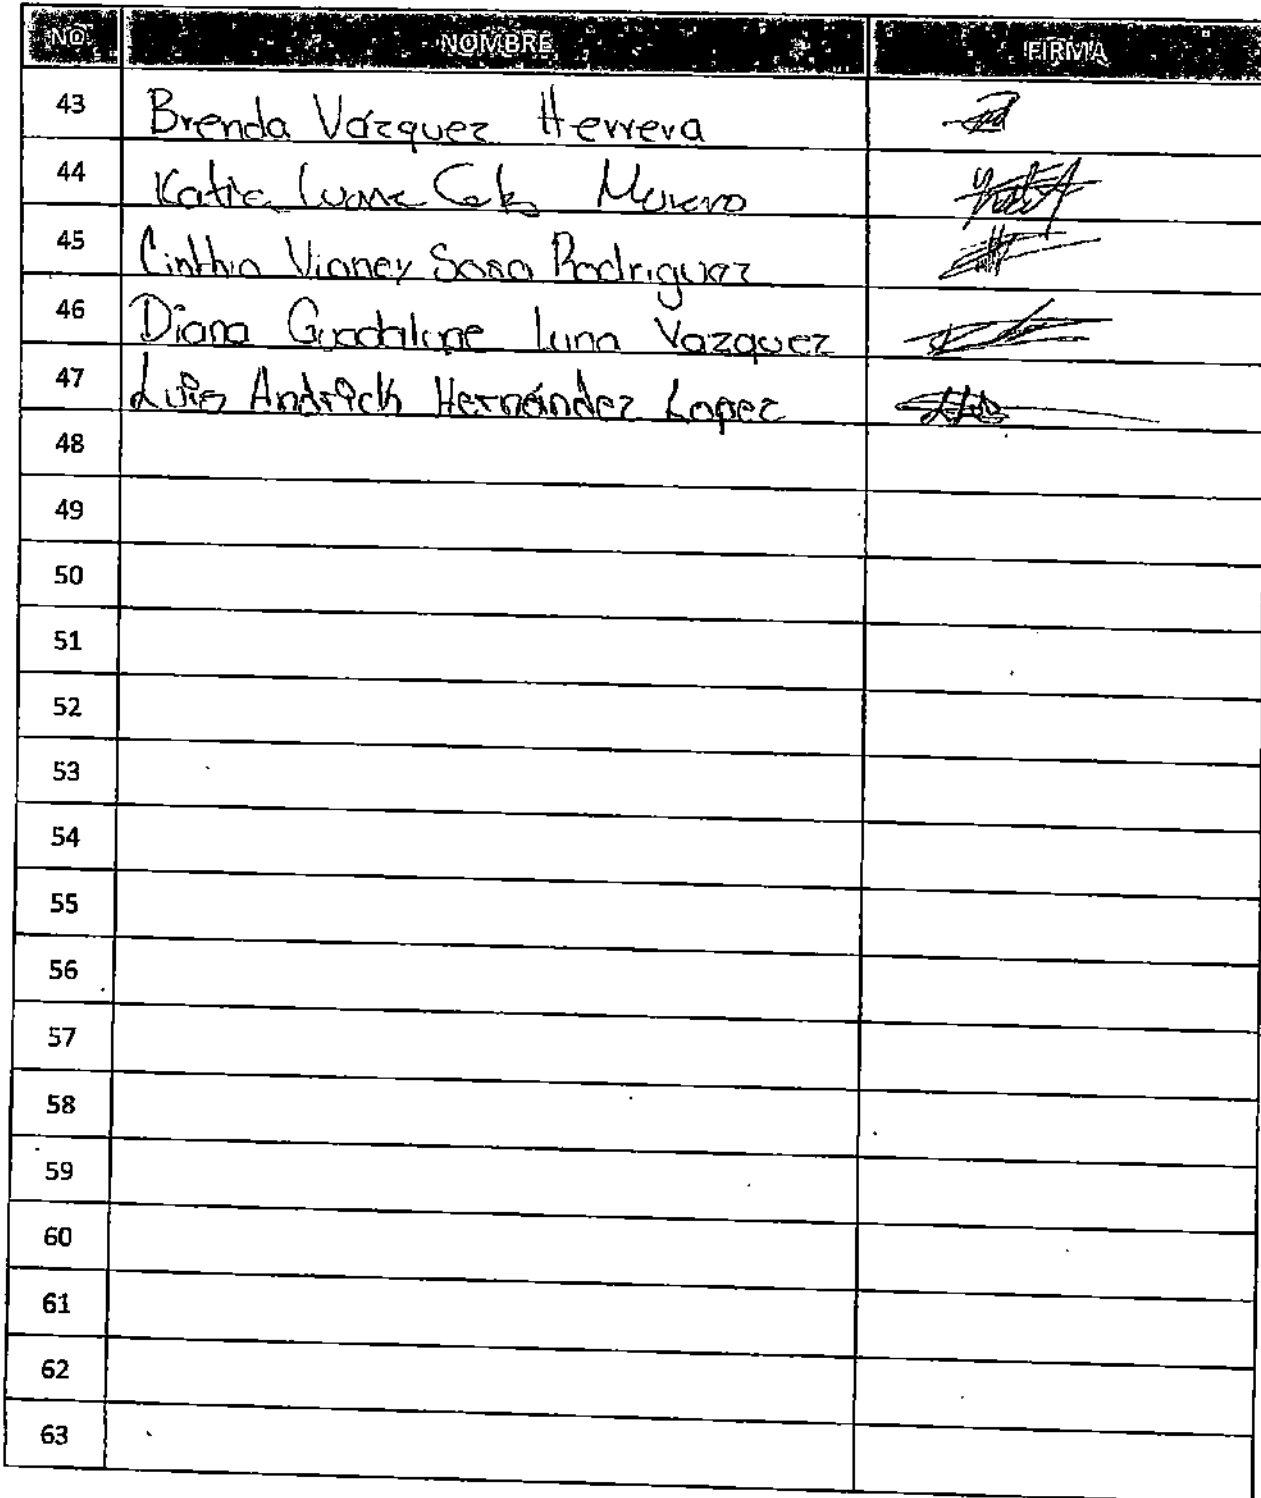 NO. NOMBRE FIRMA
43 Brenda Vázquez Herrera
44 Katia Moreno
45 Cinthia Vianey Sosa Rodriguez
46 Diana Guadalupe Luna Vazquez
47 Luis Andrick Hernández Lopez
48
49
50
51
52
53
54
55
56
57
58
59
60
61
62
63